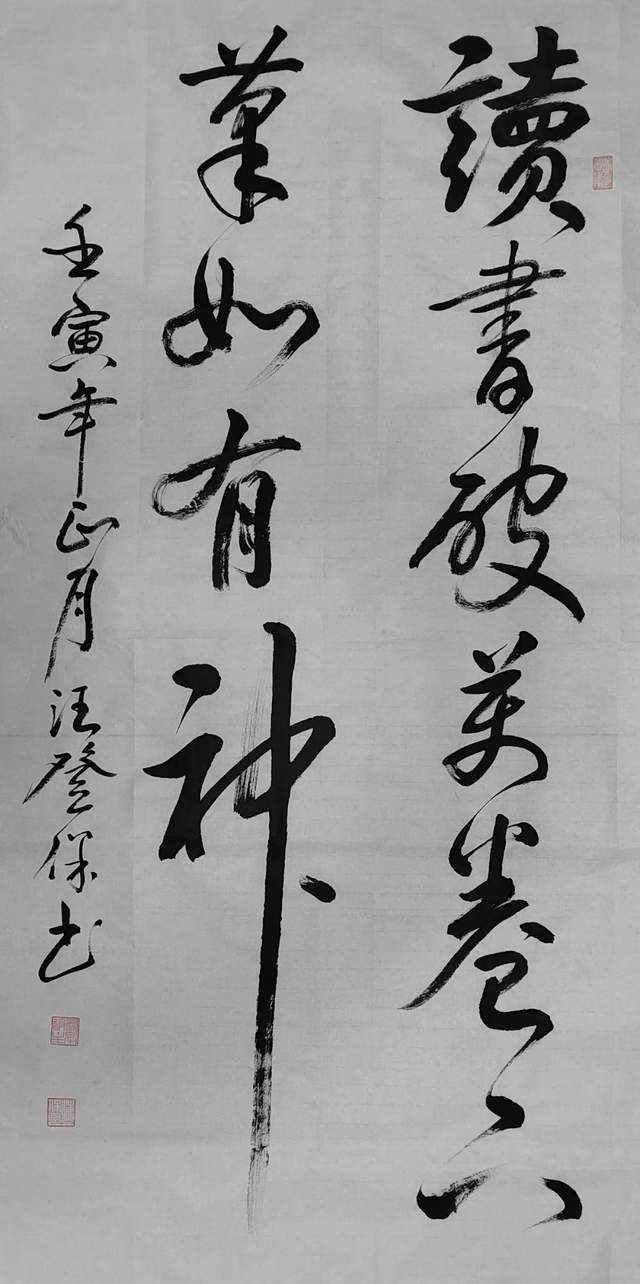 讀書破萬卷下
筆如有神
壬寅年正月汪登保书